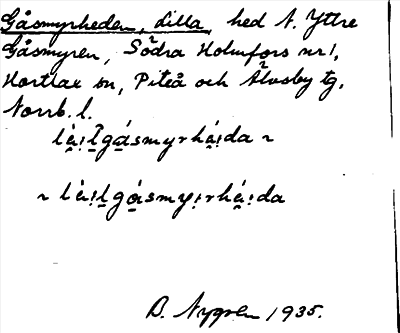 Gåsmyrheden, dilla, hed N. Yttre
Gåsmyren, Södra Holmfors nr 1,
Hortlax sn, Piteå och Älvsby tg,
Norrb. l.
lȧ̀ị l̰gá̱smyrhá̤ị da ~
~ lȧ̀ị l̰gá̱smyị rhá̤ị da
B. Nygren 1935.